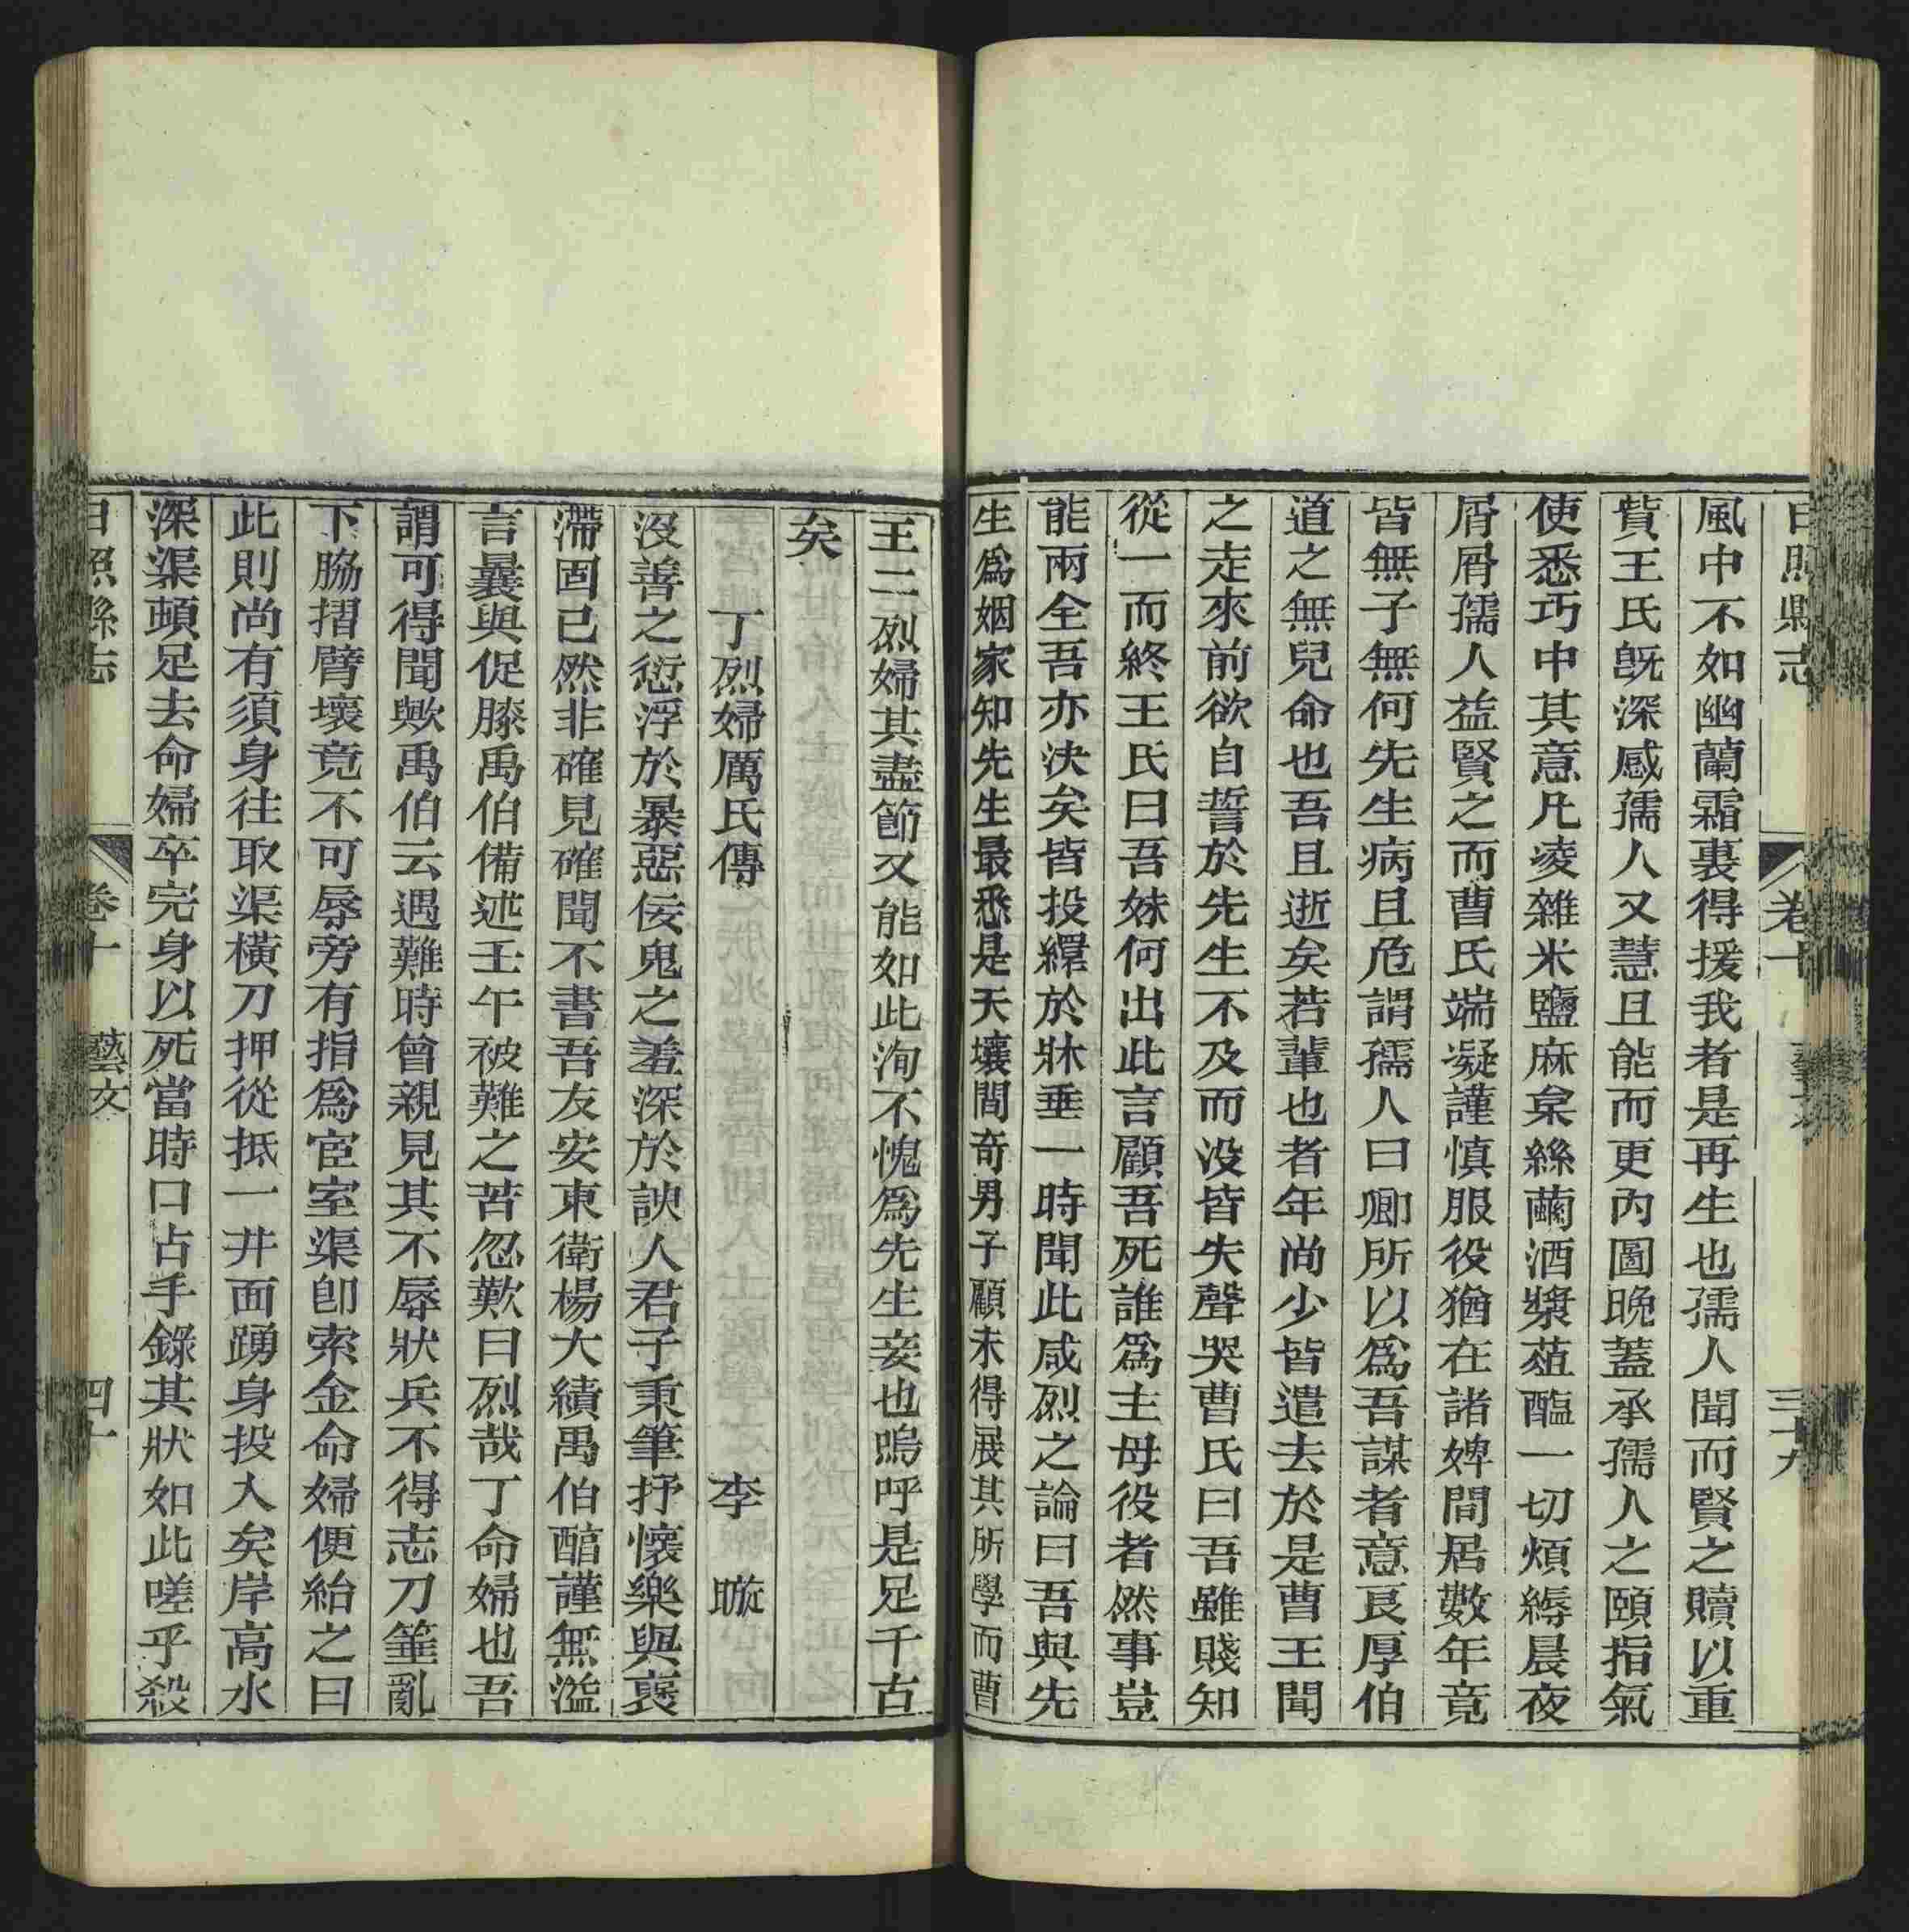 日照縣志 卷十 藝文 三十九
風中不如幽蘭霜裏得援我者是再生也孺人聞而賢之贖以重
貲王氏既深感孺人又慧且能而更內圖晚蓋承孺人之頤指氣
使悉巧中其意凡凌雜米鹽麻枲絲繭酒漿菹醢一切煩縟晨夜
屑屑孺人益賢之而曹氏端凝謹慎服役猶在諸婢間居數年竟
皆無子無何先生病且危謂孺人曰卿所以為吾謀者意良厚伯
道之無兒命也吾且逝矣若輩也者年尚少皆遣去於是曹王聞
之走來前欲自誓於先生不及而沒皆失聲哭曹氏曰吾雖賤知
從一而終王氏曰吾妹何出此言顧吾死誰為主母役者然事豈
能兩全吾亦決矣皆投繯於牀垂一時聞此咸烈之論曰吾與先
生為姻家知先生最悉是天壤間奇男子顧未得展其所學而曹
王二烈婦其盡節又能如此洵不愧為先生妾也嗚呼是足千古
矣
丁烈婦厲氏傳 李 璇
沒善之愆浮於暴惡佞鬼之羞深於諛人君子秉筆抒懷樂與褒
滯固已然非確見確聞不書吾友安東衛楊大績禹伯醕謹無溢
言曩與促膝禹伯備述壬午被難之苦忽歎曰烈哉丁命婦也吾
謂可得聞歟禹伯云遇難時曾親見其不辱狀兵不得志刀箠亂
下脇摺臂壞竟不可辱旁有指為宦室渠卽索金命婦便紿之曰
此則尚有須身往取渠橫刀押從抵一井面踴身投入矣岸高水
深渠頓足去命婦卒完身以死當時口占手錄其狀如此嗟乎殺
日照縣志 卷十 藝文 四十